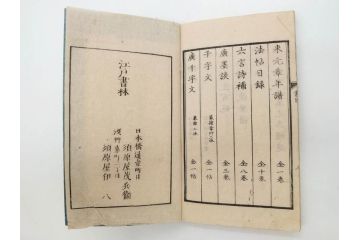 米元章年譜 全一卷
法帖目録 全十卷
六言詩補 全八卷
廣墨談 全三卷
千字文 全一帖
廣千字文 全一帖
江戸書林
日本橋通壹町目
須原屋茂兵衞
浅草茅町二丁目
須原屋伊八